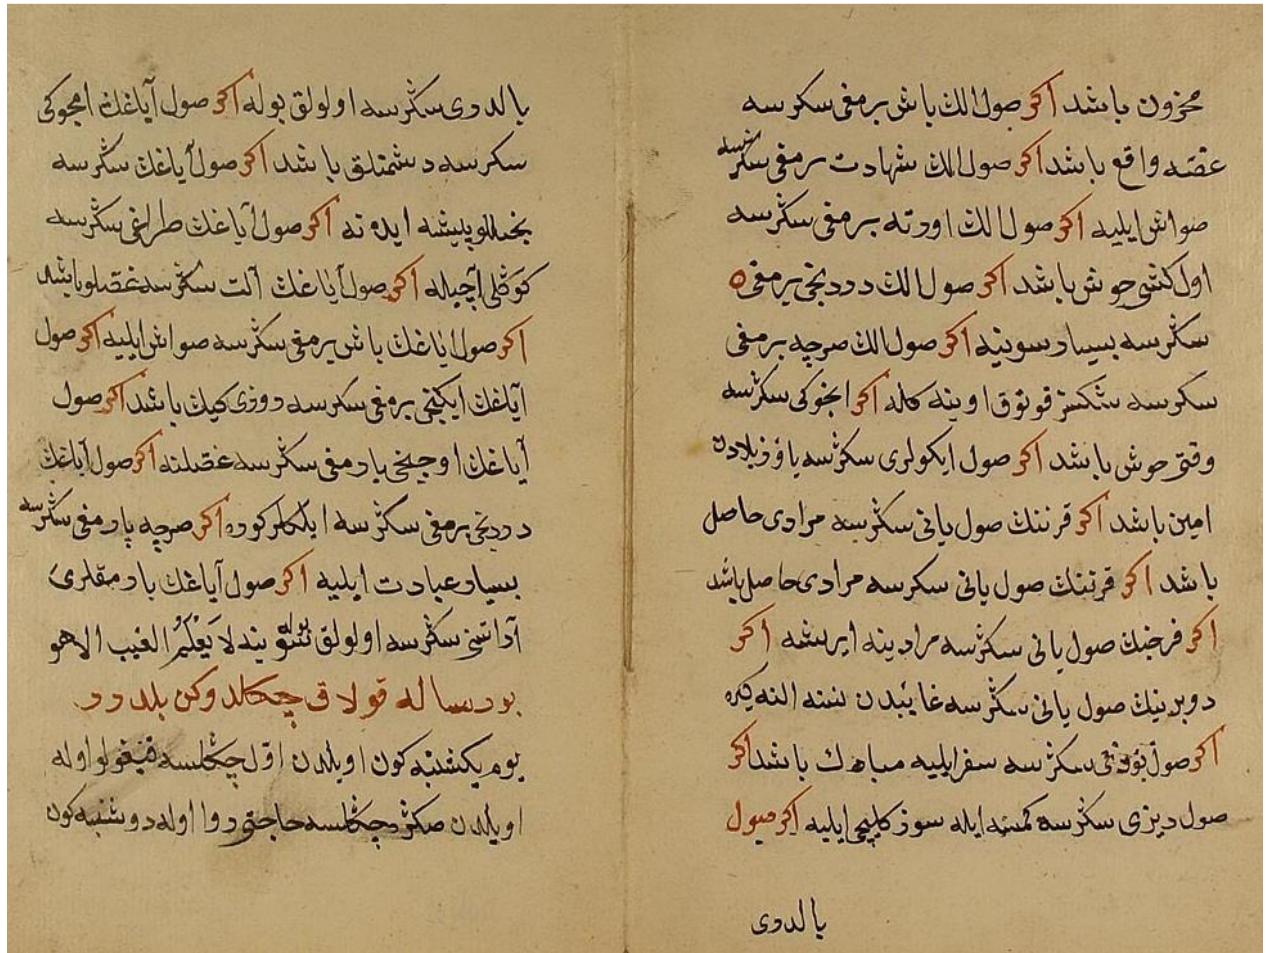 محزون باشد اكر صول الك باش برمغی سكرسه
غصه واقع باشد اكر صول الك شهادت برمغی سكرسه
صواش ایلیه اكر صول الك اورته برمغی سكرسه
اول كشی خوش باشد اكر صول الك دردنجی برمغی ه
سكرسه بسیار سونیه اكر صول الك صرچه برمغی
سكرسه سكسز قونوق اوینه كله اكر انجوكی سكرسه
وقتی خوش باشد اكر صول ایكولری سكرسه یاوز بلادن
امین باشد اكر قرننك صول یانی سكرسه مرادی حاصل
باشد اكر قرننك صول یانی سكرسه مرادی حاصل باشد
اكر فرجنك صول یانی سكرسه مرادینه ایریشه اكر
دوبرینك صول یانی سكرسه غایبدن نسنه النه كیره
اكر صول سكرسه سفر ایلیه مبارك باشد اكر
صول دیزی سكرسه كمسنه ایله سوز كلیجی ایلیه اكر صول
بالدری
بالدری سكرسه اولولق بوله اكر صول آیاغك انجوكی
سكرسه دشمنلق باشد اكر صول آیاغك سكرسه
پیشه ایدنه اكر صول آیاغك طراغی سكرسه
كوكلی آچیله اكر صول آیاغك آلت سكرسه غصه‌لو باشد
اكر صول ایاغك باش برمغی سكرسه صواش ایلیه اكر صول
آیاغك ایكنجی برمغی سكرسه دوزی كیك باشد اكر صول
آیاغك اوچنجی بارمغی سكرسه غصه‌لنه اكر صول آیاغك
دردنجی برمغی سكرسه ایلكلر كوره اكر صرچه پارمغی سكرسه
بسیار عبادت ایلیه اكر صول آیاغك بارمقلری
آداسی سكرسه اولولق بوله لا یعلم الغیب الا هو
بو رساله قولاق چكلدوكن بلدرر
یوم یكشنبه كون اویلدن اول چكلسه قیغولو اوله
اویلدن صكره چكلسه حاجتی روا اوله دوشنبه كون